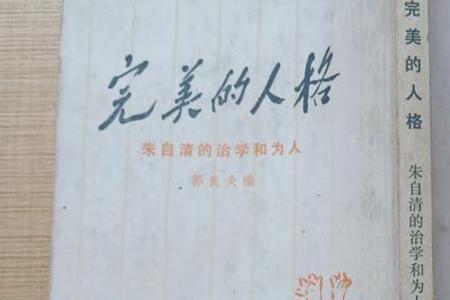 完美的人格
朱自清的治学和为人
郭良夫编
完美的人格
朱自清的治学和为人